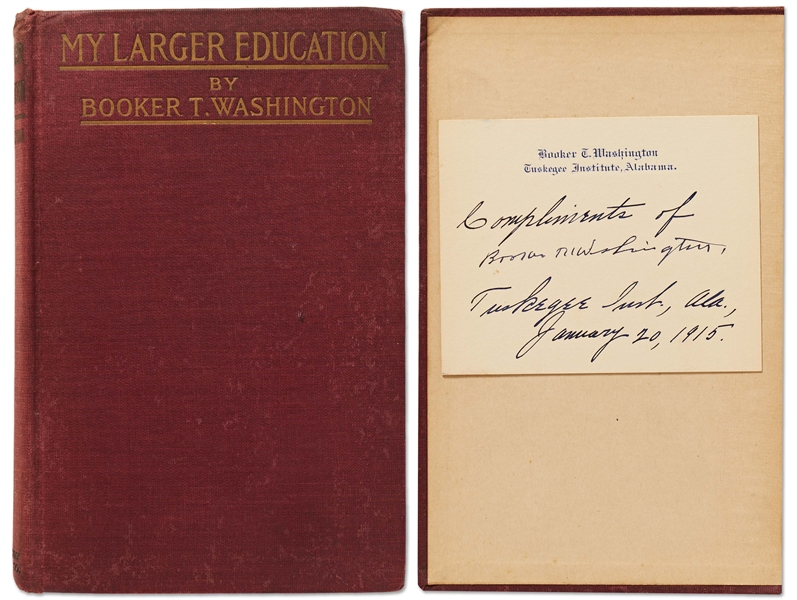 MY LARGER EDUCATION
BY
BOOKER T. WASHINGTON
Booker T. Washington
Tuskegee Institute, Alabama.
Compliments of
Booker T. Washington,
Tuskegee Inst., Ala.,
January 20, 1915.